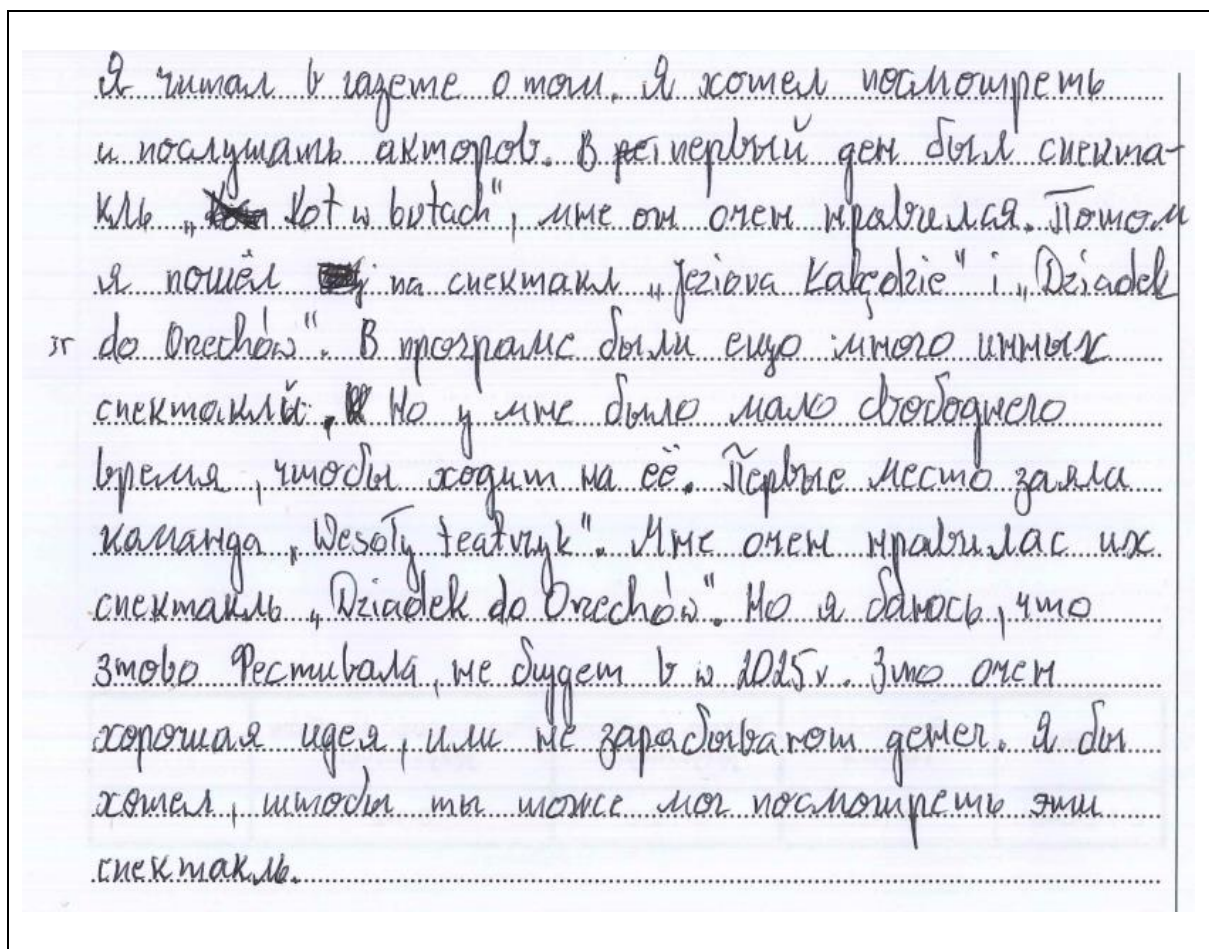 Я читал в газете о том. Я хотел посмотреть
и послушать акторов. В первый ден был спекта-
кль „Kot w butach”, мне он очен нравился. Потом
я пошёл на спектакл „Jeziora Łabędzie” i „Dziadek
do Orzechów”. В програме были ещо много инных
спектаклй. Но у мне было мало свободнего
время, чтобы ходит на её. Первые место заяла
каманда „Wesoły teatrzyk”. Мне очен нравилас их
спектакль „Dziadek do Orzechów”. Но я баюсь, что
этово Фестиваля, не будет в w 2025 r. Это очен
хорошая идея, или не зарабывают денег. Я бы
хотел, штобы ты тоже мог посмотреть эти
спектакль.